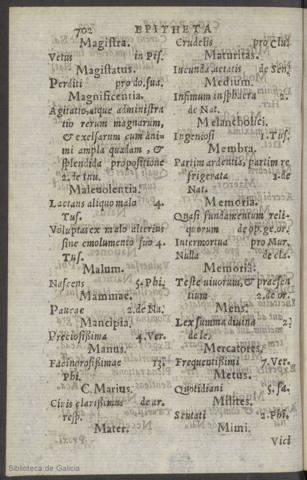 702 EPITHETA
Magistra.
Vetus in Pis.
Magistatus.
Perditi pro do. sua.
Magnificentia.
Agitatio, atque administra
tio rerum magnarum,
& excelsarum cum ani-
mi ampla quadam, &
splendida propositione
2. de Inu.
Maleuolentia.
Lætans aliquo malo 4.
Tus.
Voluptas ex malo alterius
sine emolumento suo 4.
Tus.
Malum.
Nascens 5. Phi.
Mammae.
Paucae 2. de Na.
Mancipia.
Preciosißima 4. Ver.
Manus.
Facinorosißimae 13.
Phi.
C. Marius.
Ciuis clarißimus de ar.
resp.
Mater.
Crudelis pro Clu.
Maturitas.
Iucunda aetatis de Sen.
Medium.
Infimum in sphaera 2.
de Nat.
Melancholici.
Ingeniosi 1. Tus.
Membra.
Partim ardentia, partim re
frigerata 1. de
Nat.
Memoria.
Quasi fundamentum reli-
quorum de op. ge. or.
Intermortua pro Mur.
Nulla de cla.
Memoria.
Teste viuorum, & praesen
tium 2. de or.
Mens.
Lex summa diuina 2.
de le.
Mercatores.
Frequentißimi 7. Ver.
Metus.
Quotidiani 5. fa.
Milites.
Scutati 2. Phi.
Mimi.
Vici
Biblioteca de Galicia